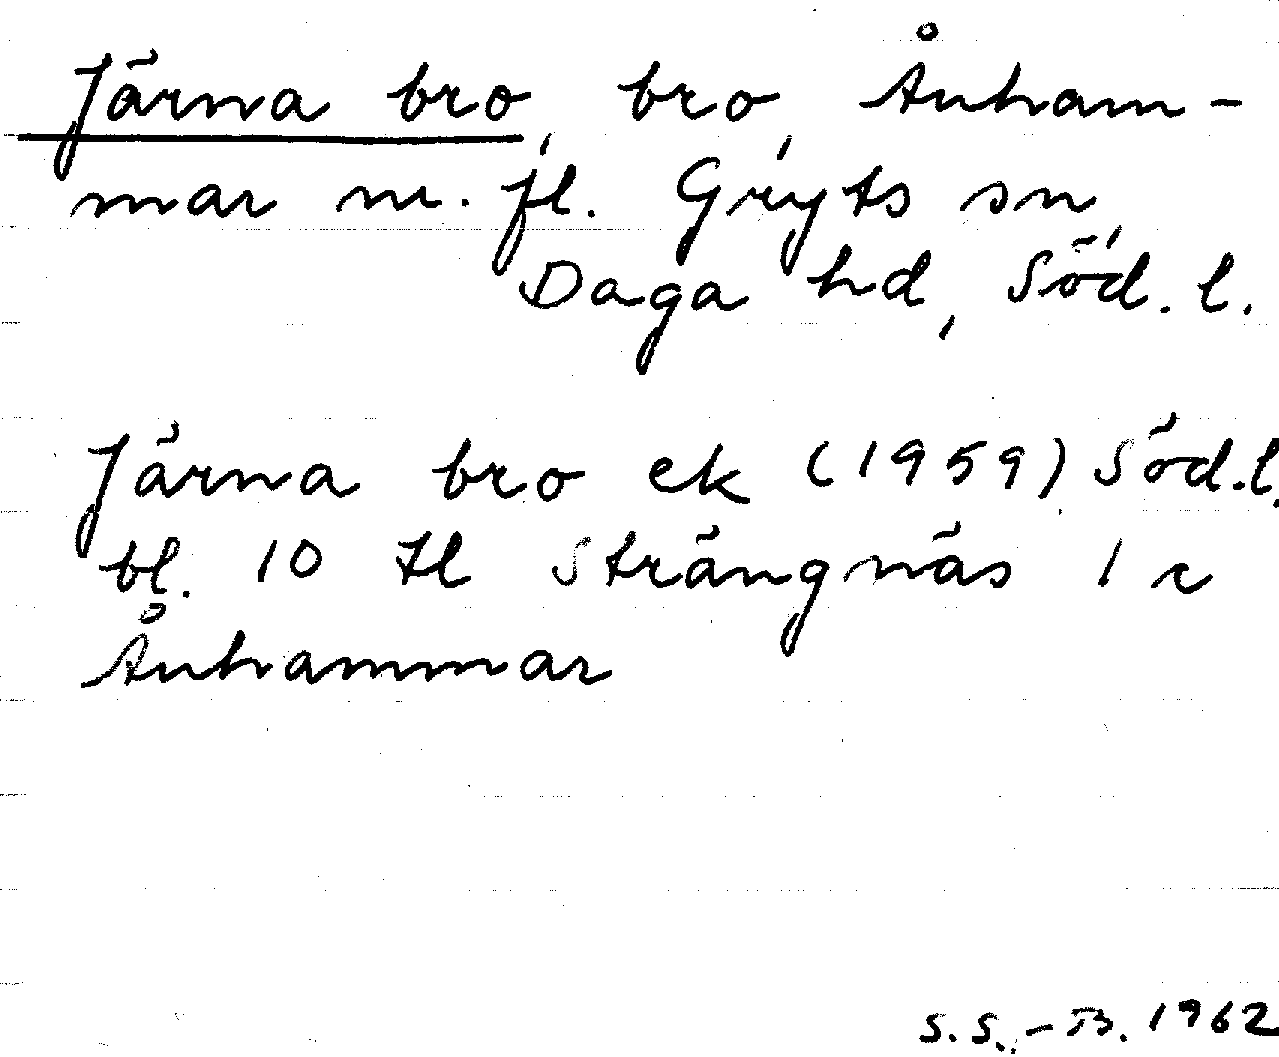 Järna bro, bro, Ånham-
mar m. fl. Gryts sn,
Daga hd, Söd. l.
Järna bro ek (1959) Söd.l.
bl. 10 tl Strängnäs 1 c
Ånhammar
S.S.-B. 1962